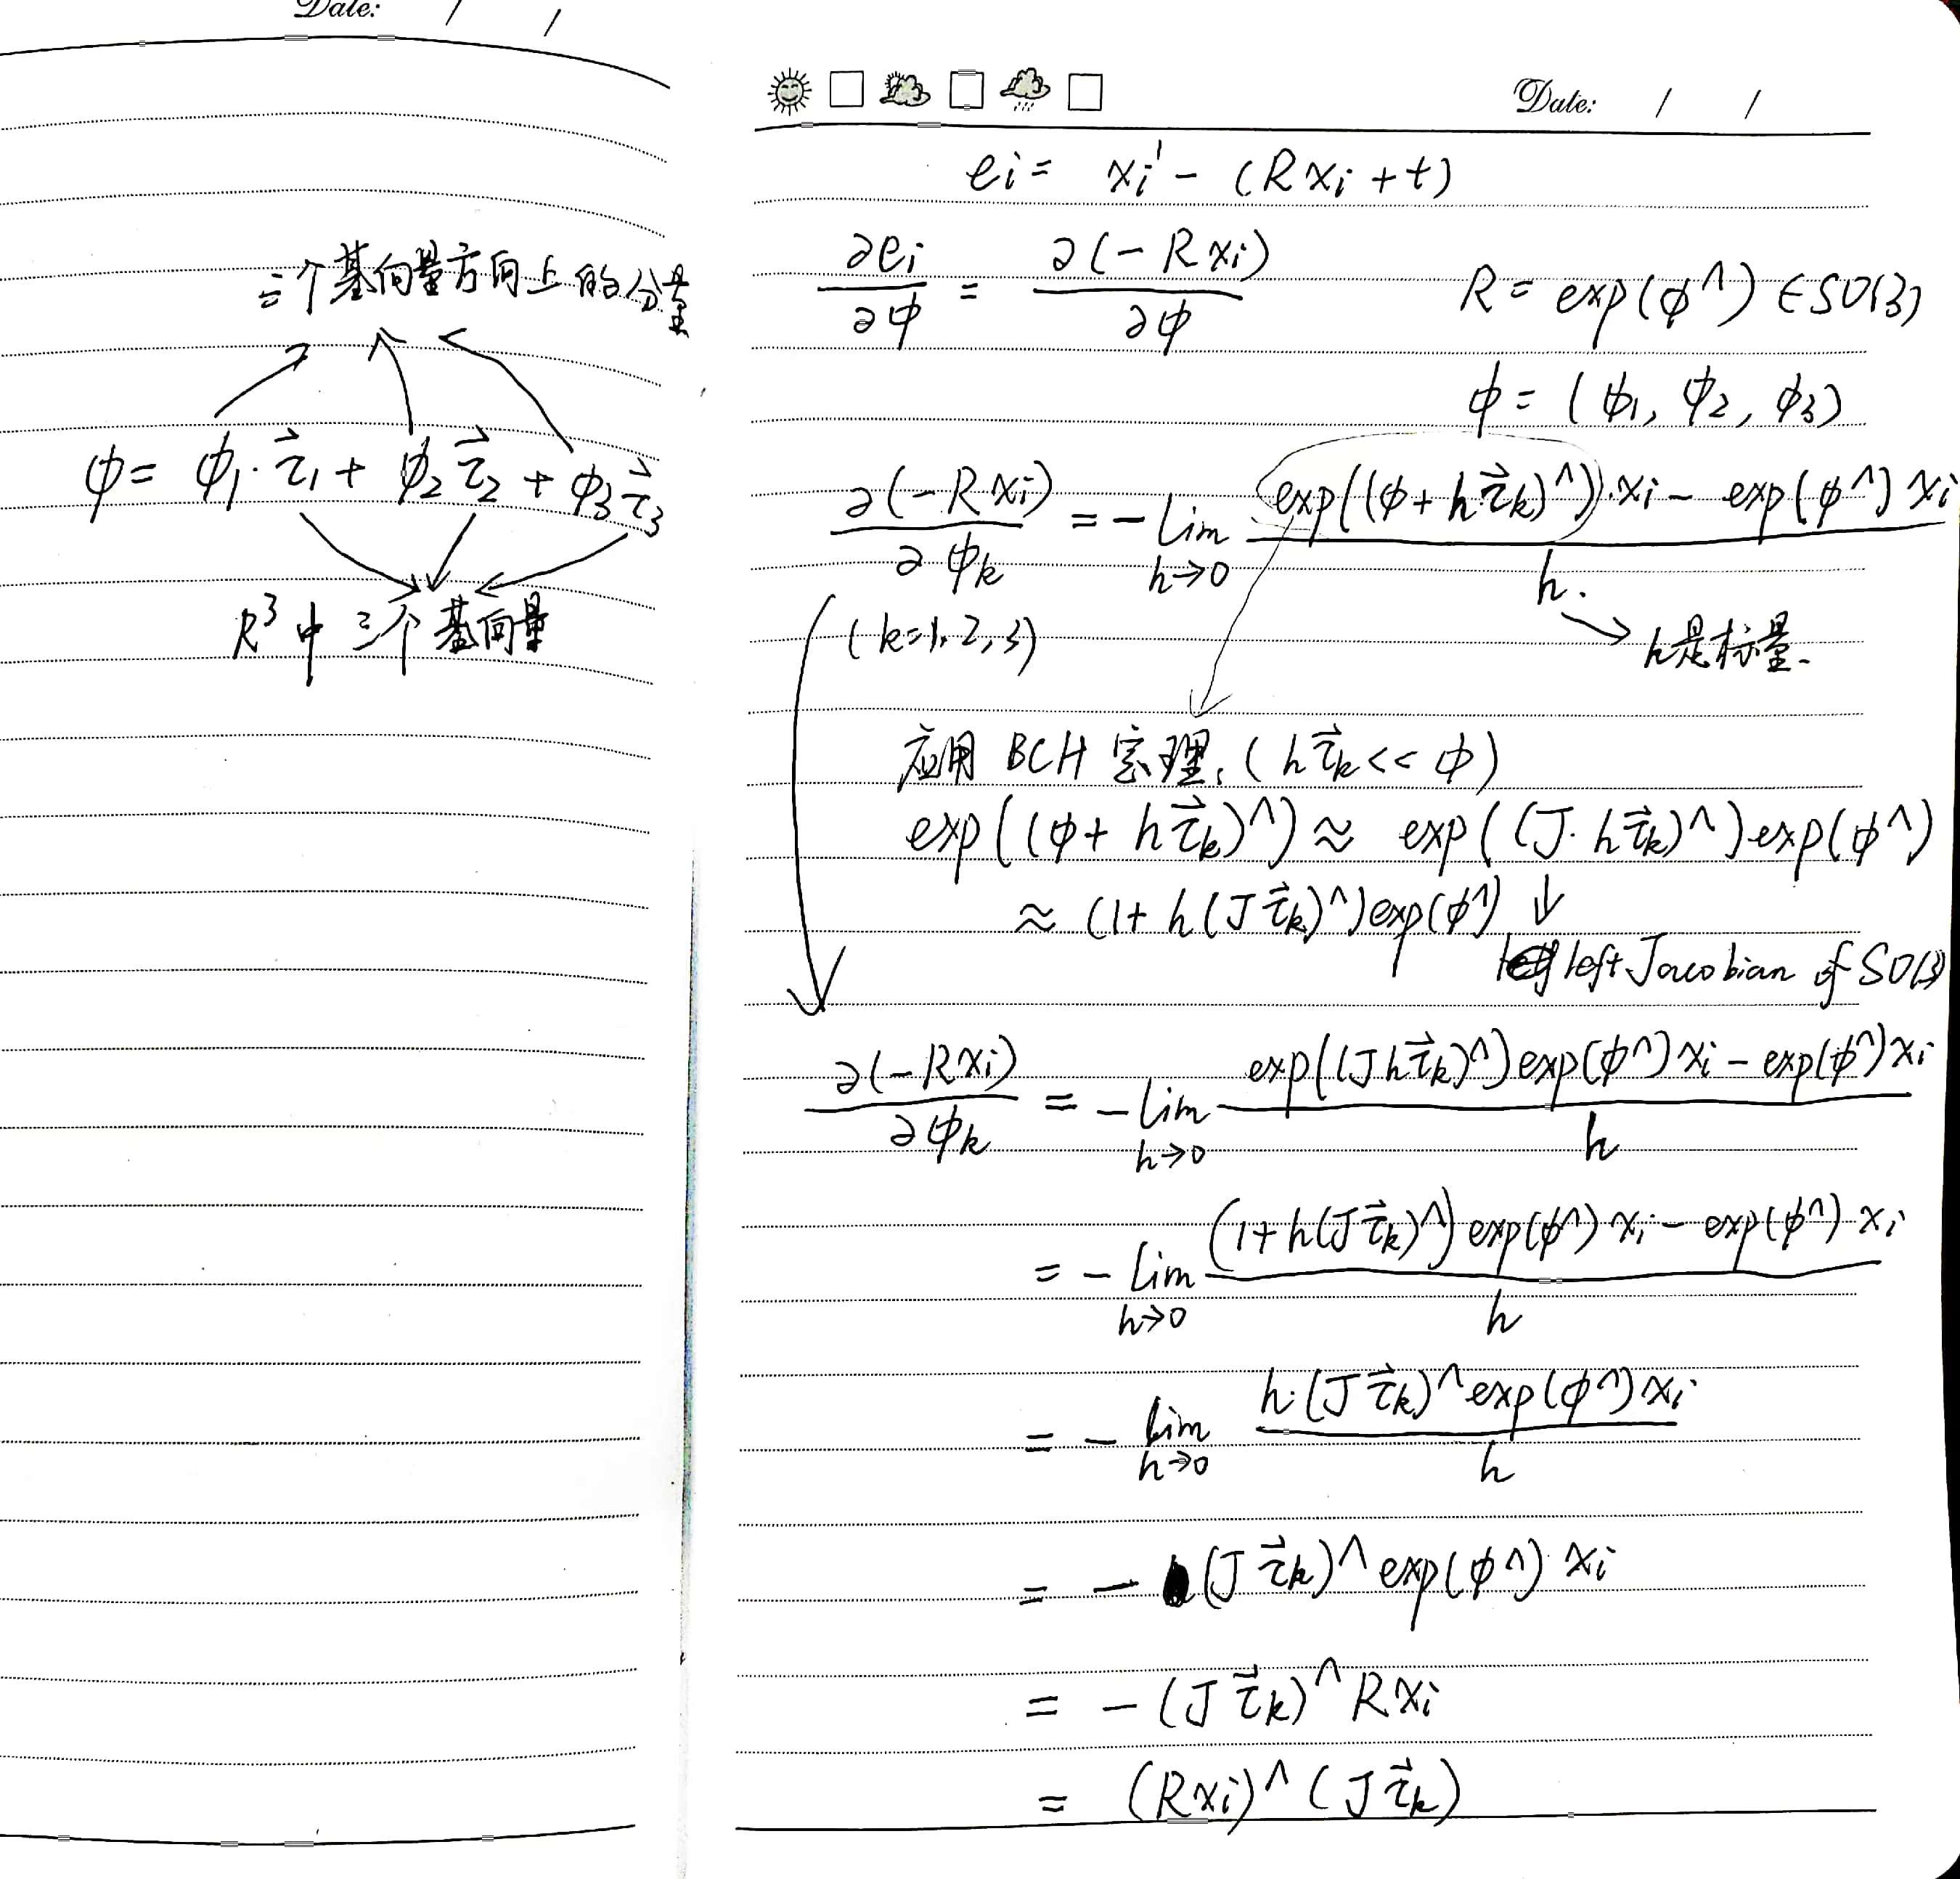 Date: / /
三个基向量方向上的分量
ϕ = ϕ₁·τ⃗₁ + ϕ₂τ⃗₂ + ϕ₃τ⃗₃
R³中 三个基向量
Date: / /
eᵢ = xᵢ' - (Rxᵢ + t)
∂eᵢ/∂ϕ = ∂(-Rxᵢ)/∂ϕ    R = exp(ϕ^) ∈ SO(3)
ϕ = (ϕ₁, ϕ₂, ϕ₃)
∂(-Rxᵢ)/∂ϕₖ = -lim_{h→0} (exp((ϕ + hτ⃗ₖ)^)·xᵢ - exp(ϕ^)xᵢ)/h.
(k=1,2,3)
h是标量.
应用 BCH 定理, (hτ⃗ₖ << ϕ)
exp((ϕ + hτ⃗ₖ)^) ≈ exp((J·hτ⃗ₖ)^)exp(ϕ^)
≈ (1 + h(Jτ⃗ₖ)^)exp(ϕ^)
left Jacobian of SO(3)
∂(-Rxᵢ)/∂ϕₖ = -lim_{h→0} (exp((Jhτ⃗ₖ)^)exp(ϕ^)xᵢ - exp(ϕ^)xᵢ)/h
= -lim_{h→0} ((1 + h(Jτ⃗ₖ)^)exp(ϕ^)xᵢ - exp(ϕ^)xᵢ)/h
= -lim_{h→0} (h·(Jτ⃗ₖ)^exp(ϕ^)xᵢ)/h
= -(Jτ⃗ₖ)^exp(ϕ^)xᵢ
= -(Jτ⃗ₖ)^Rxᵢ
= (Rxᵢ)^(Jτ⃗ₖ)